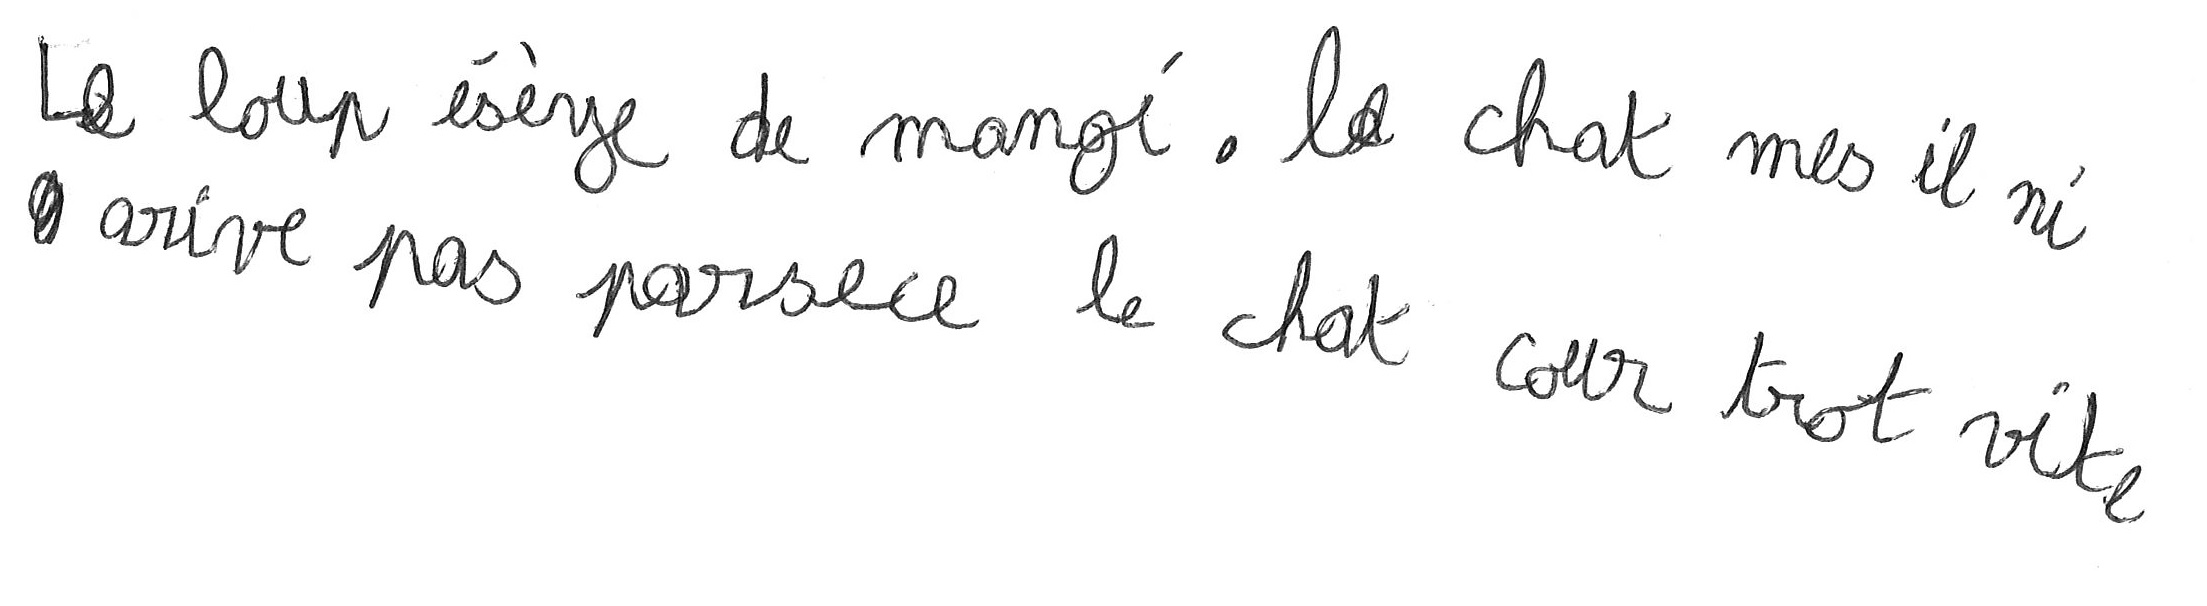 Le loup ésèye de mangé. le chat mes il ni
arive pas parsece le chat cour trot vite